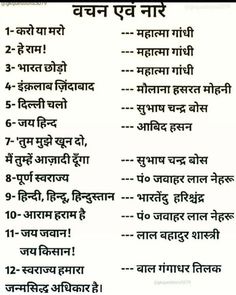 वचन एवं नारे
1- करो या मरो --- महात्मा गांधी
2- हे राम! --- महात्मा गांधी
3- भारत छोड़ो --- महात्मा गांधी
4- इंक़लाब ज़िंदाबाद --- मौलाना हसरत मोहनी
5- दिल्ली चलो --- सुभाष चन्द्र बोस
6- जय हिन्द --- आबिद हसन
7- 'तुम मुझे खून दो,
मैं तुम्हें आज़ादी दूँगा --- सुभाष चन्द्र बोस
8-पूर्ण स्वराज्य --- पं० जवाहर लाल नेहरू
9- हिन्दी, हिन्दू, हिन्दुस्तान --- भारतेंदु हरिश्चंद्र
10- आराम हराम है --- पं० जवाहर लाल नेहरू
11- जय जवान! --- लाल बहादुर शास्त्री
जय किसान!
12- स्वराज्य हमारा --- बाल गंगाधर तिलक
जन्मसिद्ध अधिकार है।